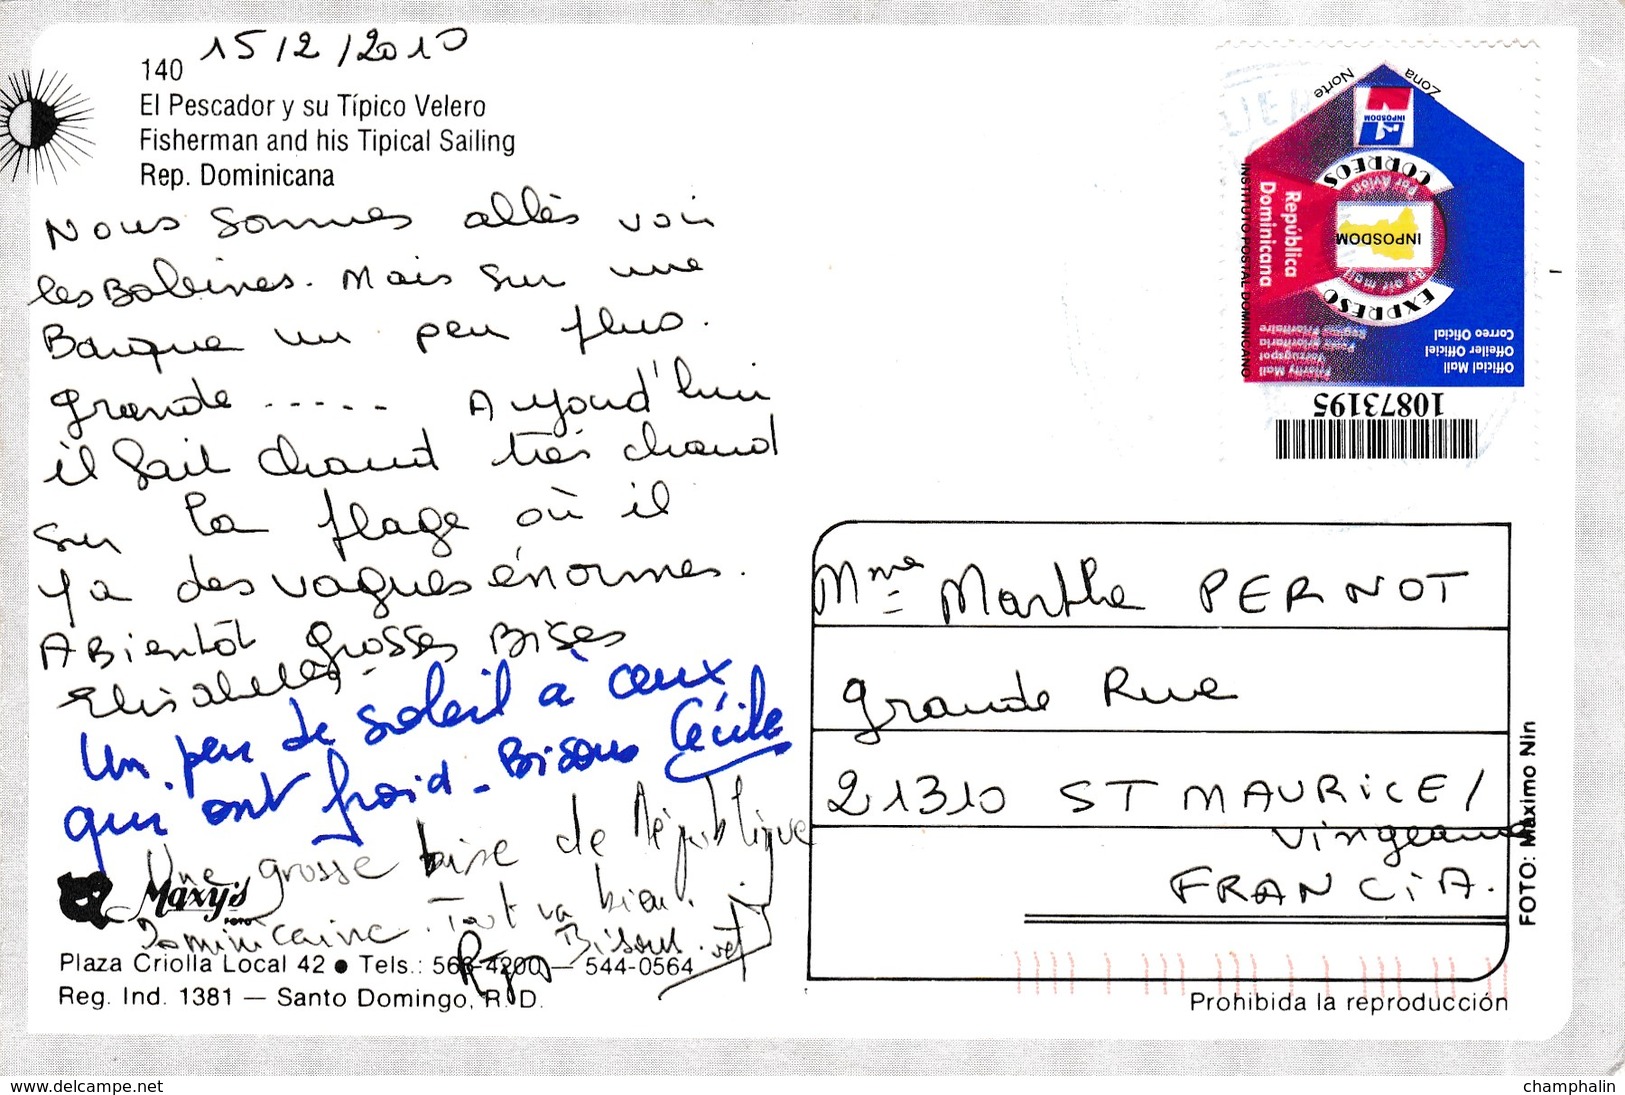 15/2/2010
140
El Pescador y su Típico Velero
Fisherman and his Tipical Sailing
Rep. Dominicana
Nous sommes allès voir
les Baleines. Mais sur une
Barque un peu plus
grande ..... Aujourd'hui
il fait chaud très chaud
sur la plage où il
ya des vagues énormes.
A Bientôt grosses Bises
Elisabeth
Un peu de soleil à ceux
qui ont froid - Bisous Cécile
Une grosse bise de République
Dominicaine. Tout va bien.
Bisous.
Maxy's
FOTO
Plaza Criolla Local 42 ● Tels.: 566-4200 — 544-0564
Reg. Ind. 1381 — Santo Domingo, R. D.
Zona Norte
INPOSDOM
CORREOS
Por Avion
INPOSDOM
By air mail
EXPRESO
República
Dominicana
INSTITUTO POSTAL DOMINICANO
Official Mail
Correo Oficial
Priority Mail
10873195
Mme Marthe PERNOT
grande Rue
21310 ST MAURICE/
Vingeanne
FRANCIA.
FOTO: Máximo Nin
Prohibida la reproducción
www.delcampe.net
champhalin